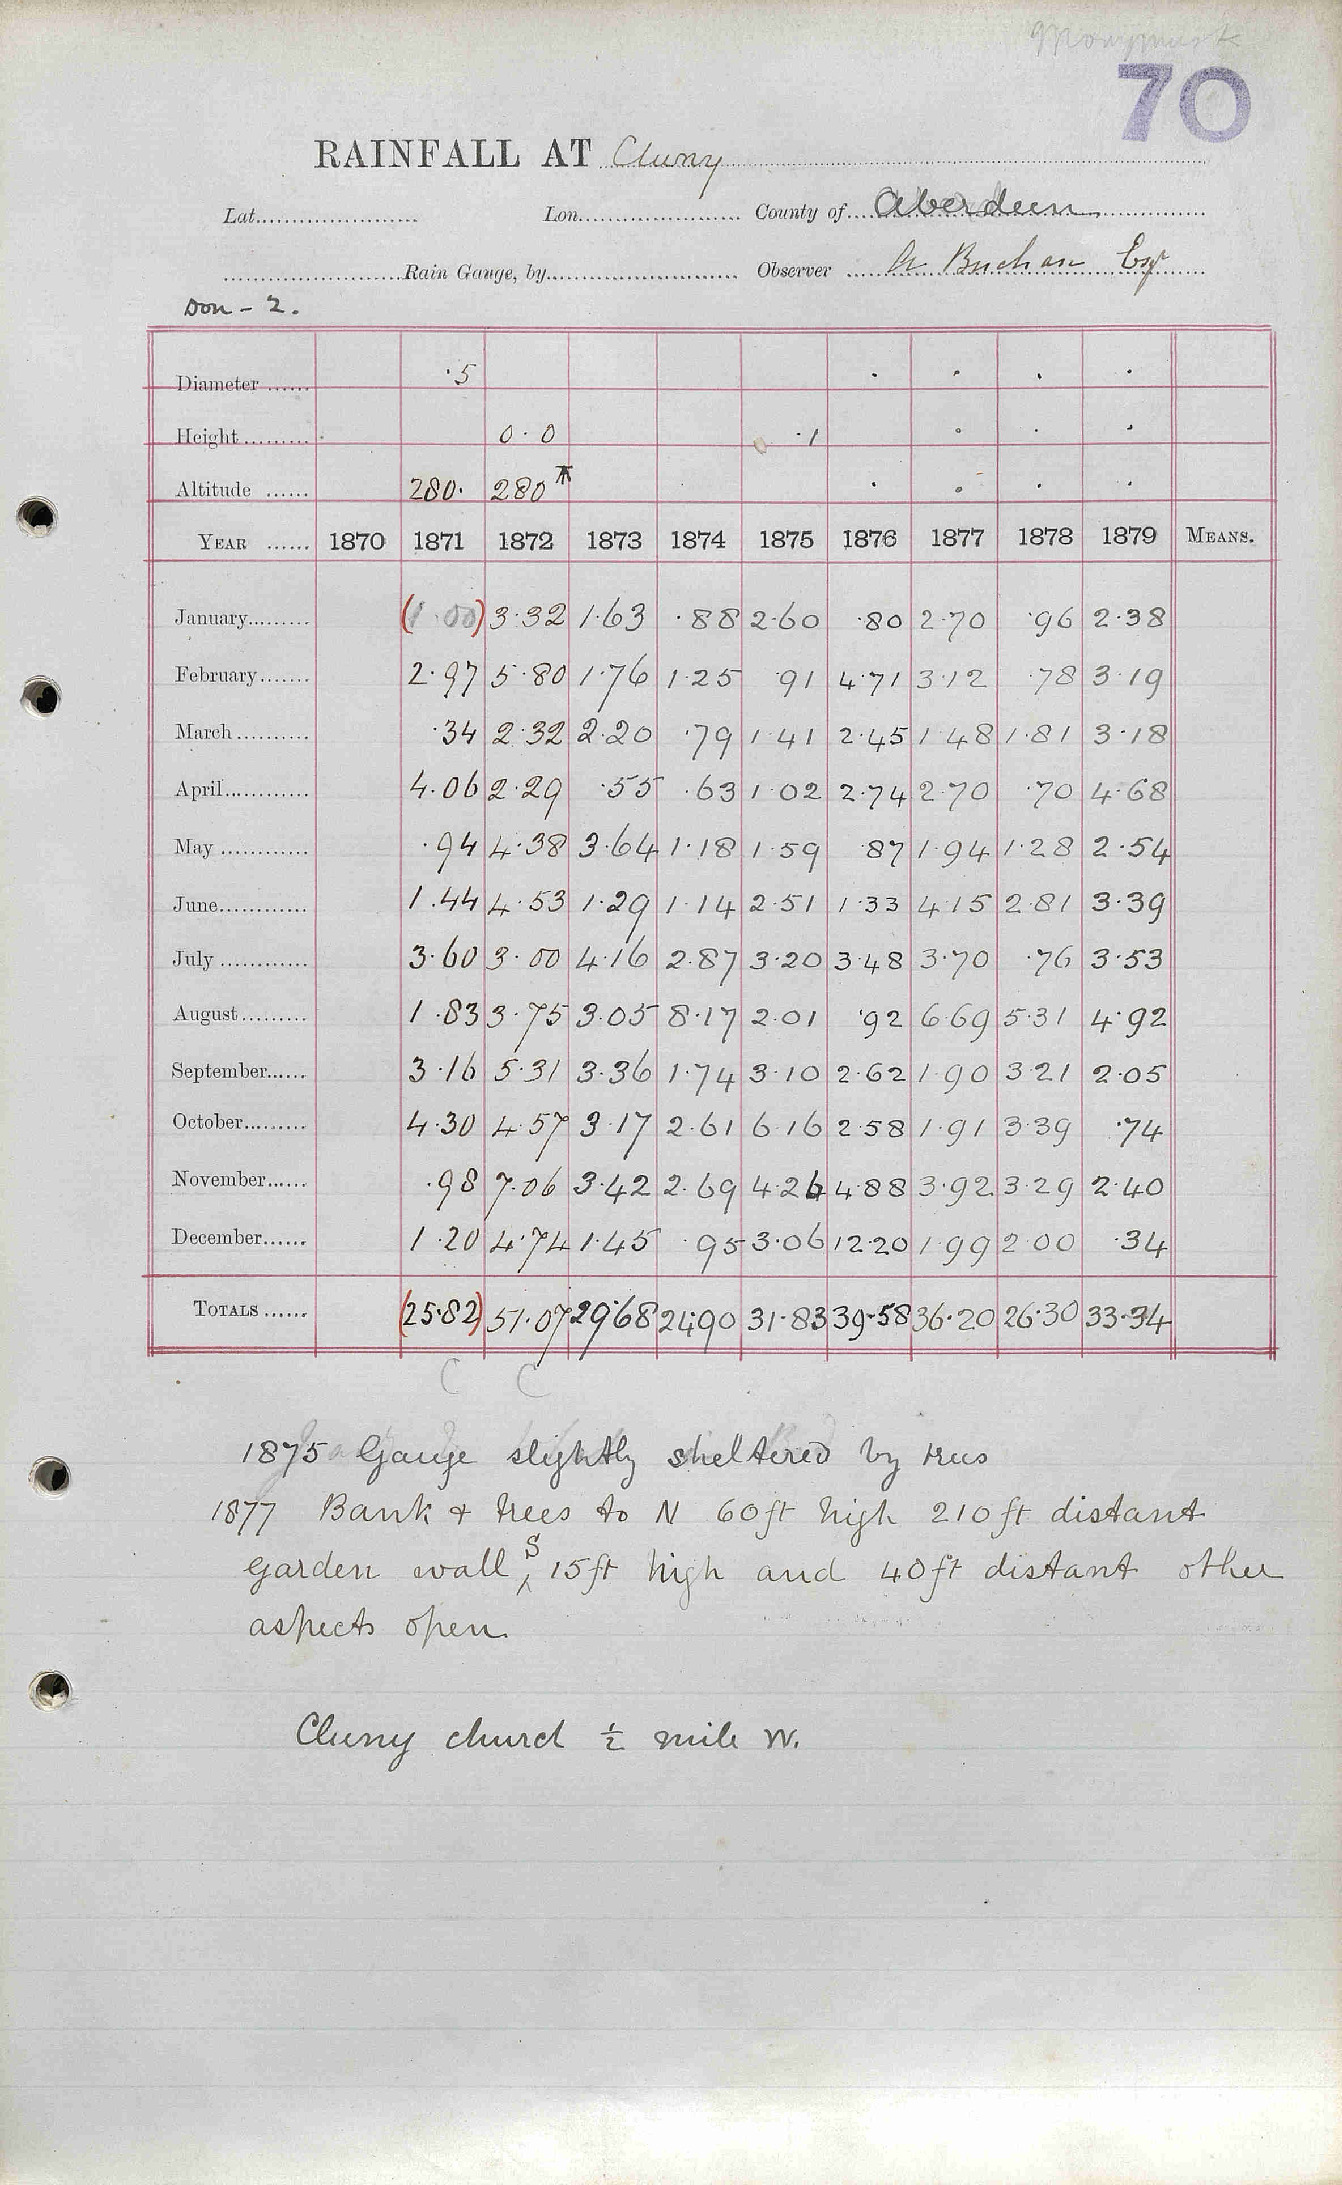 Monymusk
70
RAINFALL AT Cluny
Lat. Lon. County of Aberdeen
Rain Gauge, by Observer A Buchan Esqr
Don - 2.
Diameter ·5 · · · ·
Height 0·0 ·1 · · ·
Altitude 280· 280 · · · ·
YEAR 1870 1871 1872 1873 1874 1875 1876 1877 1878 1879 MEANS.
January (1·00) 3·32 1·63 ·88 2·60 ·80 2·70 ·96 2·38
February 2·97 5·80 1·76 1·25 ·91 4·71 3·12 ·78 3·19
March ·34 2·32 2·20 ·79 1·41 2·45 1·48 1·81 3·18
April 4·06 2·29 ·55 ·63 1·02 2·74 2·70 ·70 4·68
May ·94 4·38 3·64 1·18 1·59 ·87 1·94 1·28 2·54
June 1·44 4·53 1·29 1·14 2·51 1·33 4·15 2·81 3·39
July 3·60 3·00 4·16 2·87 3·20 3·48 3·70 ·76 3·53
August 1·83 3·75 3·05 8·17 2·01 ·92 6·69 5·31 4·92
September 3·16 5·31 3·36 1·74 3·10 2·62 1·90 3·21 2·05
October 4·30 4·57 3·17 2·61 6·16 2·58 1·91 3·39 ·74
November ·98 7·06 3·42 2·69 4·26 4·88 3·92 3·29 2·40
December 1·20 4·74 1·45 ·95 3·06 12·20 1·99 2·00 ·34
TOTALS (25·82) 51·07 29·68 24·90 31·83 39·58 36·20 26·30 33·34
C C
1875 Gauge slightly sheltered by trees
1877 Bank & trees to N 60ft high 210ft distant
garden wall S 15ft high and 40ft distant other
aspects open.
Cluny church ½ mile W.